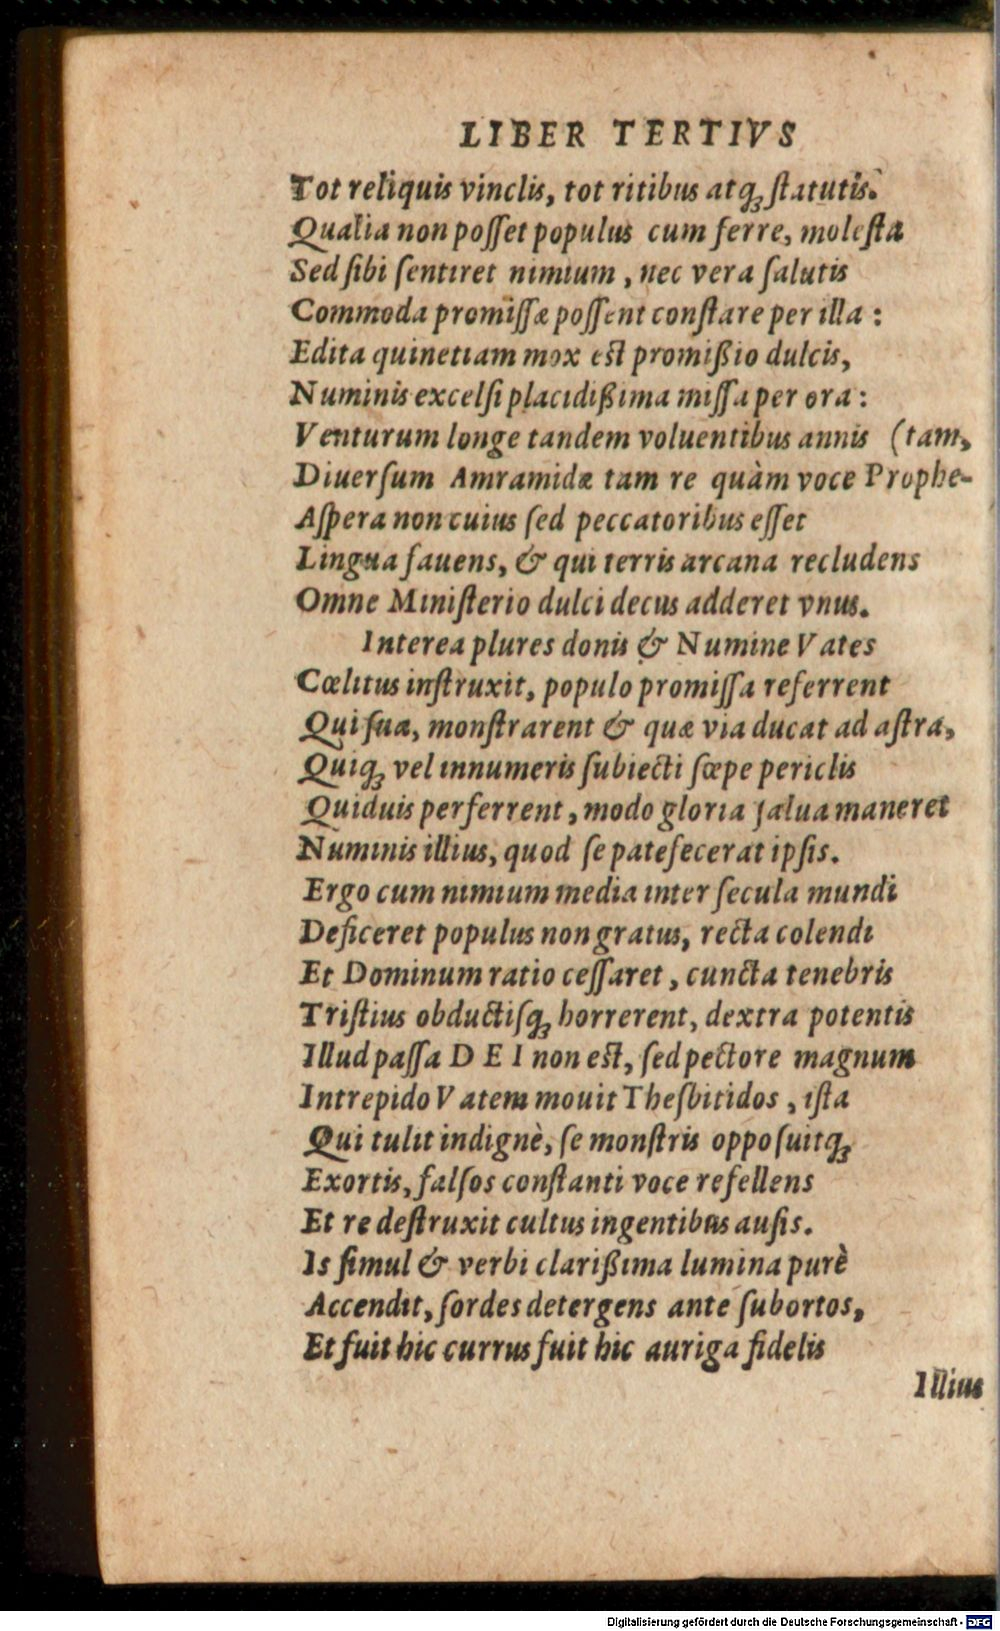 LIBER TERTIVS
Tot reliquis vinclis, tot ritibus atqꝫ ſtatutis.
Qualia non poſſet populus cum ferre, moleſta
Sed ſibi ſentiret nimium, nec vera ſalutis
Commoda promiſſæ poſſent conſtare per illa:
Edita quinetiam mox eſt promißio dulcis,
Numinis excelſi placidißima miſſa per ora:
Venturum longe tandem voluentibus annis (tam,
Diuerſum Amramidæ tam re quàm voce Prophe-
Aſpera non cuius ſed peccatoribus eſſet
Lingua fauens, & qui terris arcana recludens
Omne Miniſterio dulci decus adderet vnus.
Interea plures donis & Numine Vates
Cœlitus inſtruxit, populo promiſſa referrent
Qui ſua, monſtrarent & quæ via ducat ad aſtra,
Quiqꝫ vel innumeris ſubiecti ſœpe periclis
Quiduis perferrent, modo gloria ſalua maneret
Numinis illius, quod ſe patefecerat ipſis.
Ergo cum nimium media inter ſecula mundi
Deficeret populus non gratus, recta colendi
Et Dominum ratio ceſſaret, cuncta tenebris
Triſtius obductiſqꝫ horrerent, dextra potentis
Illud paſſa DEI non eſt, ſed pectore magnum
Intrepido Vatem mouit Theſbitidos, iſta
Qui tulit indignè, ſe monſtris oppoſuitqꝫ
Exortis, falſos conſtanti voce refellens
Et re deſtruxit cultus ingentibus auſis.
Is ſimul & verbi clarißima lumina purè
Accendit, ſordes detergens ante ſubortos,
Et fuit hic currus fuit hic auriga fidelis
Illius
Digitalisierung gefördert durch die Deutsche Forschungsgemeinschaft - DFG